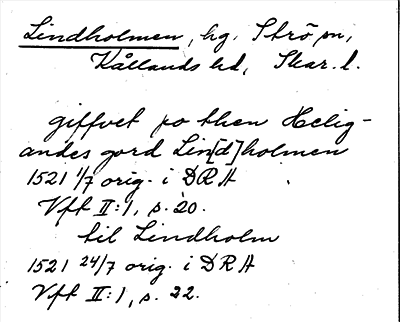 Lindholmen, hg. Strö sn,
Kållands hd, Skar. l.
giffvet po then Helig-
andes gord Lin[d]holmen
1521 1/7 orig. i DRA
Vft II:1, s. 20.
till Lindholm
1521 24/7 orig. i DRA
Vft II:1, s. 22.